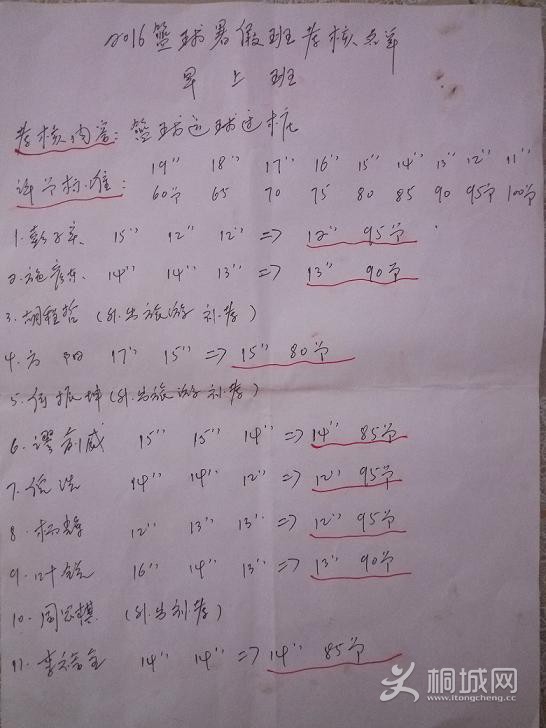 2016篮球暑假班考核名单
早上班
考核内容：篮球运球过桩
评分标准：19" 18" 17" 16" 15" 14" 13" 12" 11"
60分 65 70 75 80 85 90 95分 100分
1. 15" 12" 12" => 12" 95分
2. 施彦东 14" 14" 13" => 13" 90分
3. 胡程哲（外出旅游 补考）
4. 方阳 17" 15" => 15" 80分
5. 何振坤（外出旅游补考）
6. 谬俞威 15" 15" 14" => 14" 85分
7. 14" 14" 12" => 12" 95分
8. 杨 12" 13" 13" => 12" 95分
9. 叶锐 16" 14" 13" => 13" 90分
10. 周 棋（外出补考）
11. 李 14" 14" => 14" 85分
桐城网
www.itongcheng.cc